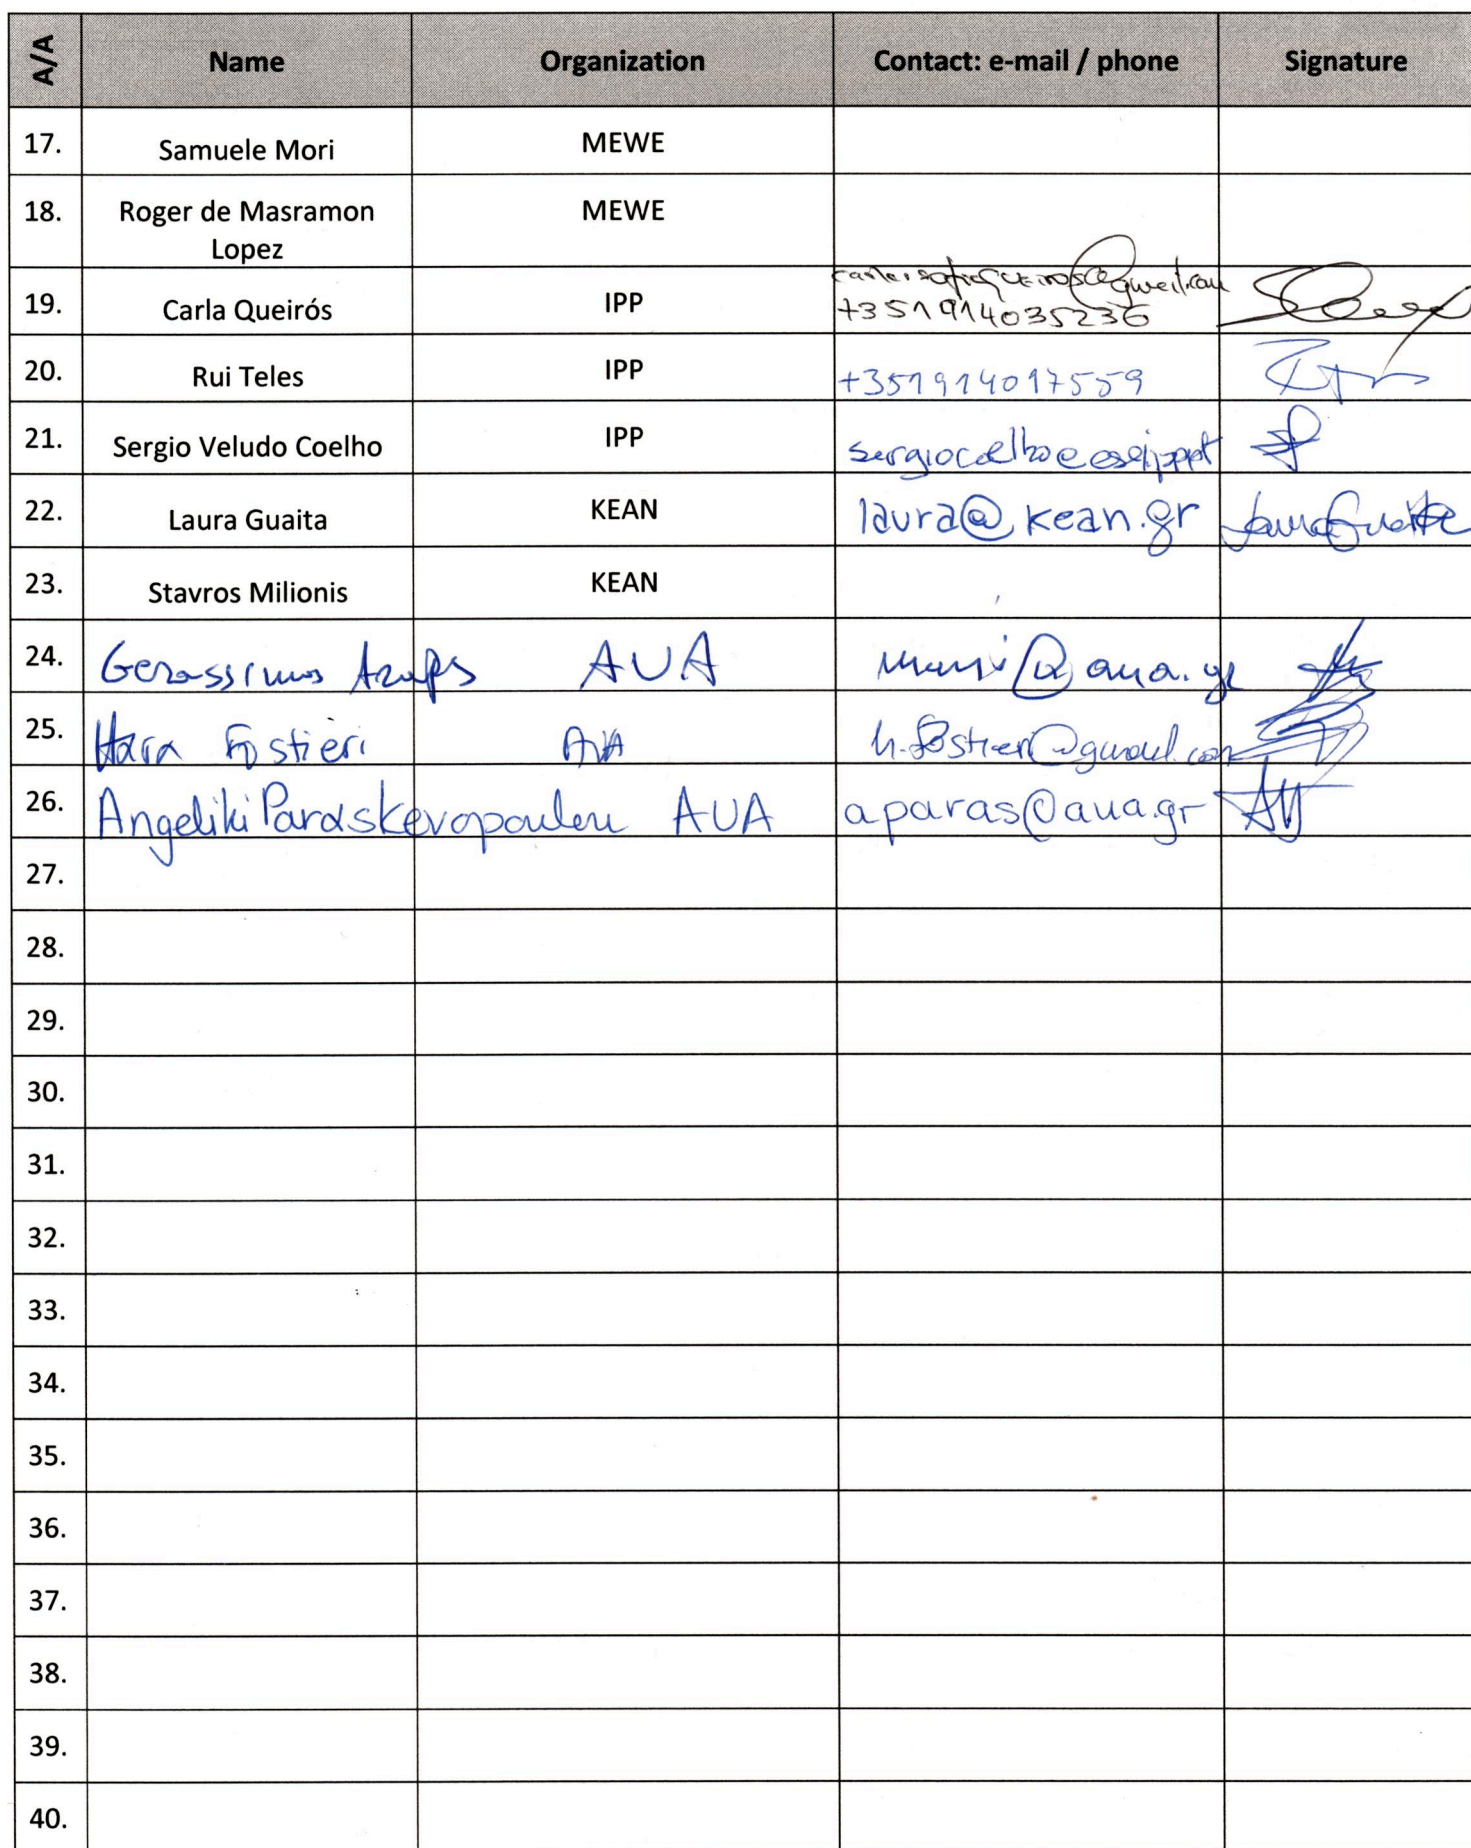 A/A Name Organization Contact: e-mail / phone Signature
17. Samuele Mori MEWE
18. Roger de Masramon MEWE
Lopez
19. Carla Queirós IPP +351914035236
20. Rui Teles IPP +351914017559
21. Sergio Veludo Coelho IPP
22. Laura Guaita KEAN laura@kean.gr Laura Guaita
23. Stavros Milionis KEAN
24. Gerassimos AUA
25. Hara Fostieri AUA
26. Angeliki Paraskevopoulou AUA aparas@aua.gr
27.
28.
29.
30.
31.
32.
33.
34.
35.
36.
37.
38.
39.
40.